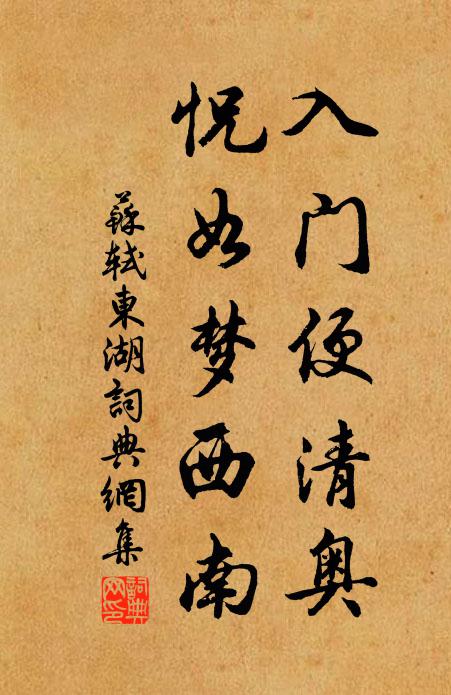 入门便清奥
怳如梦西南
蘇轼東湖詞典網集
詞典网印